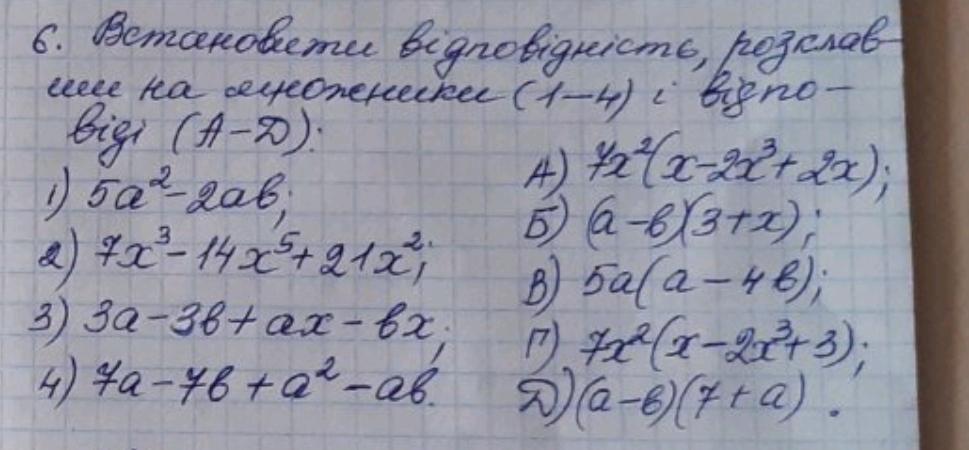 6. Встановити відповідність, розклав-
ши на множники (1-4) і відпо-
віді (А-Д):
1) 5a²-2ab;
2) 7x³-14x⁵+21x²;
3) 3a-3b+ax-bx;
4) 7a-7b+a²-ab.
А) 7x²(x-2x³+2x);
Б) (a-b)(3+x);
В) 5a(a-4b);
Г) 7x²(x-2x³+3);
Д) (a-b)(7+a).